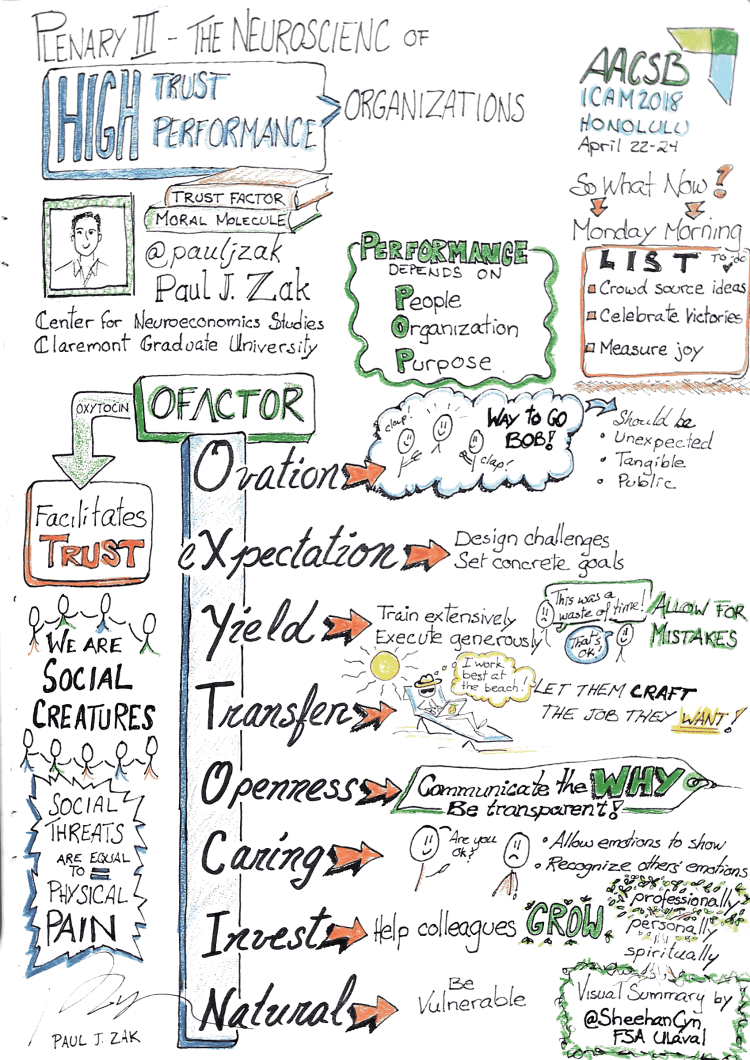 PLENARY III - THE NEUROSCIENC OF
HIGH TRUST
PERFORMANCE
ORGANIZATIONS
AACSB
ICAM2018
HONOLULU
April 22-24
TRUST FACTOR
MORAL MOLECULE
@pauljzak
Paul J. Zak
Center for Neuroeconomics Studies
Claremont Graduate University
PERFORMANCE
DEPENDS ON
People
Organization
Purpose
So What Now?
Monday Morning
LIST TO do
Crowd source ideas
Celebrate Victories
Measure joy
OXYTOCIN
OFACTOR
Facilitates
TRUST
WE ARE
SOCIAL
CREATURES
SOCIAL
THREATS
ARE EQUAL
TO =
PHYSICAL
PAIN
PAUL J. ZAK
Ovation
clap!
clap!
WAY TO GO
BOB!
Should be
• Unexpected
• Tangible
• Public
eXpectation
Design challenges
Set concrete goals
Yield
Train extensively
Execute generously
This was a
waste of time!
That's
OK!
ALLOW FOR
MISTAKES
Transfer
I work
best at
the beach!
LET THEM CRAFT
THE JOB THEY WANT!
Openness
Communicate the WHY
Be transparent!
Caring
Are you
OK?
• Allow emotions to show
• Recognize others' emotions
Invest
Help colleagues GROW
professionally
personally
spiritually
Natural
Be
Vulnerable
Visual Summary by
@SheehanCyn
FSA ULaval